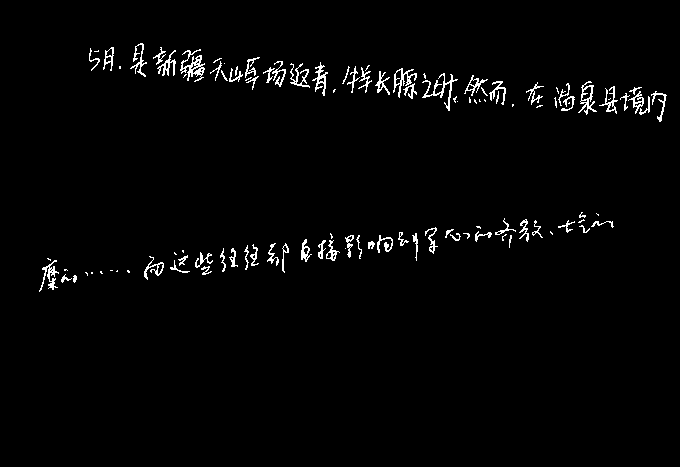 5月,是新疆天山草场返青,牛羊长膘之时。然而,在温泉县境内
靡的……而这些往往却直接影响到军心的齐散、士气的